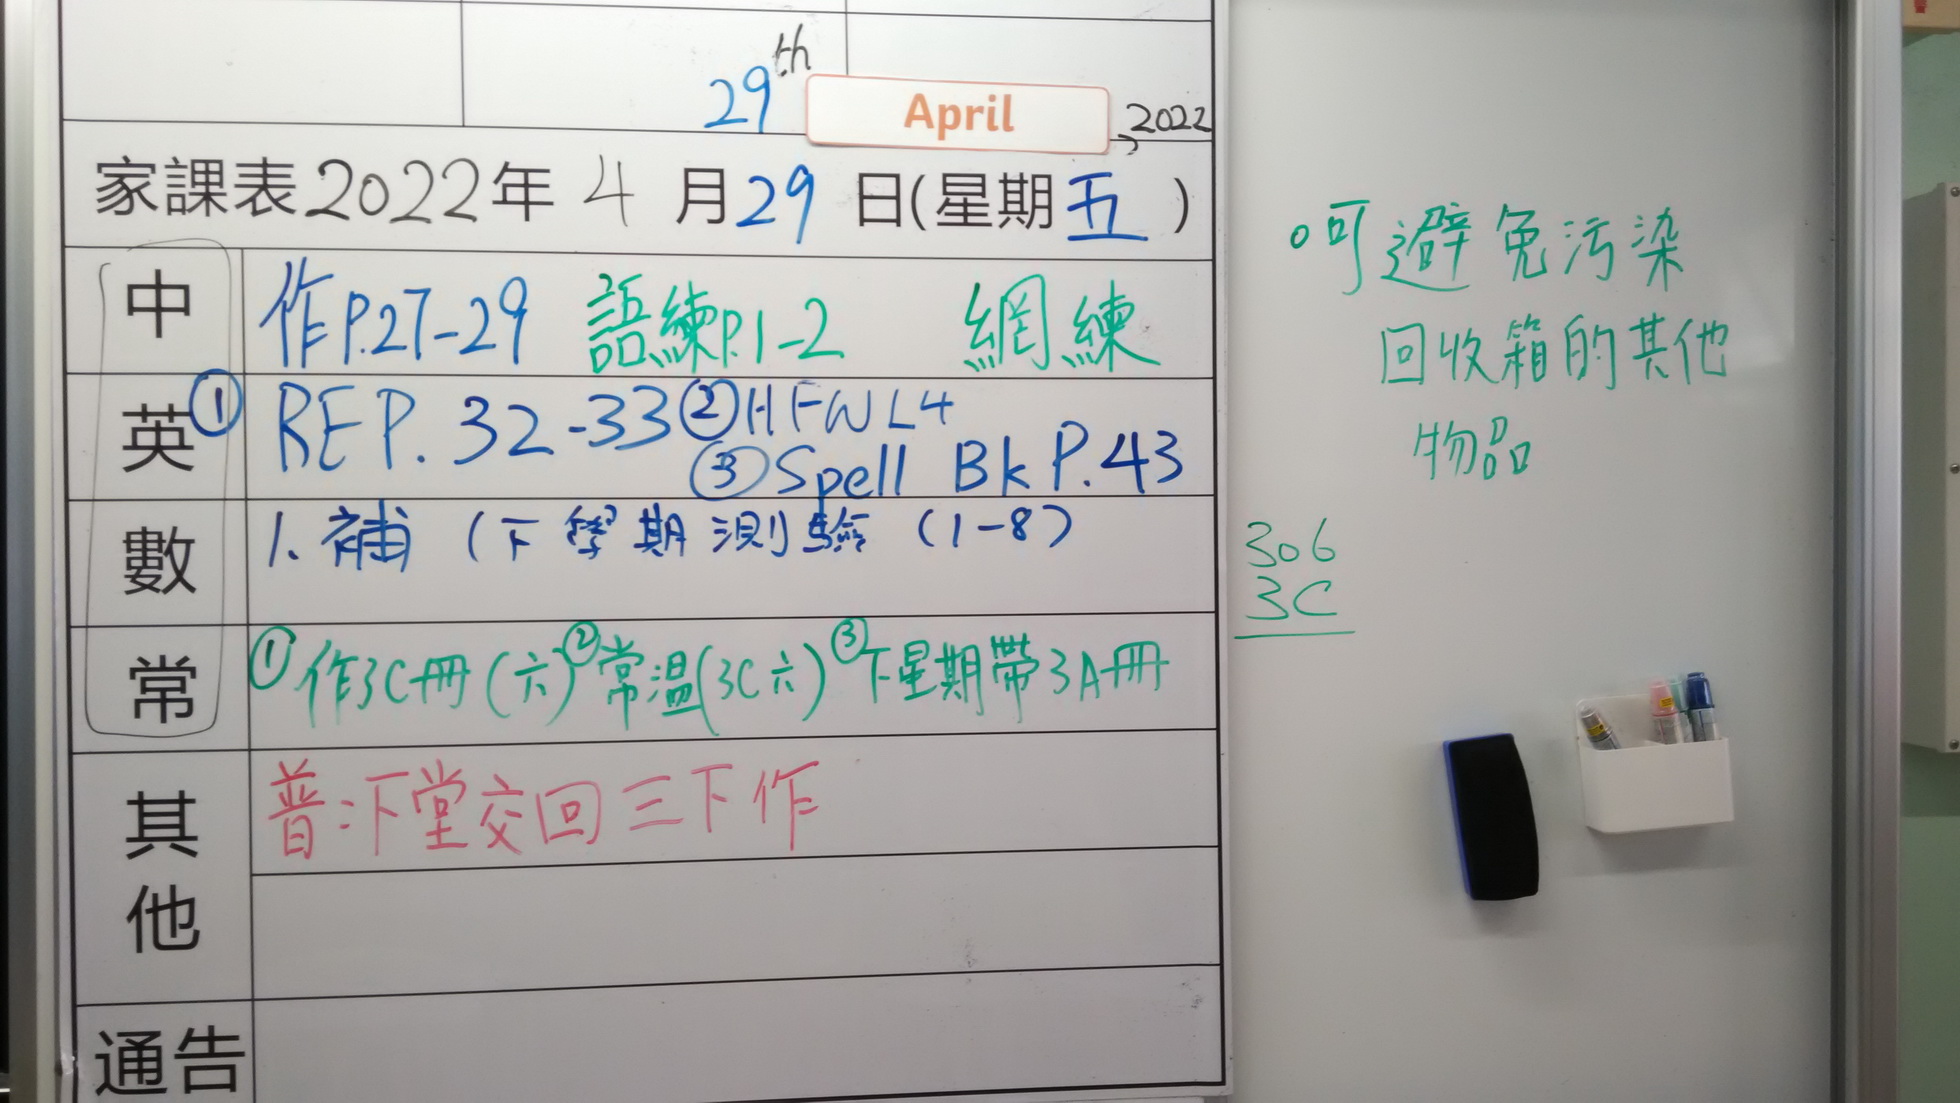 29th April, 2022
家課表2022年4月29日(星期五)
中 作P.27-29 語練P.1-2 網練
英 ① REP. 32-33 ② HFW L4
③ Spell Bk P.43
數 1. 補 (下學期測驗 (1-8)
常 ① 作3C冊(六) ② 常温(3C六) ③ 下星期帶3A冊
其他 普:下堂交回三下作
通告
。可避免污染
回收箱的其他
物品
306
3C